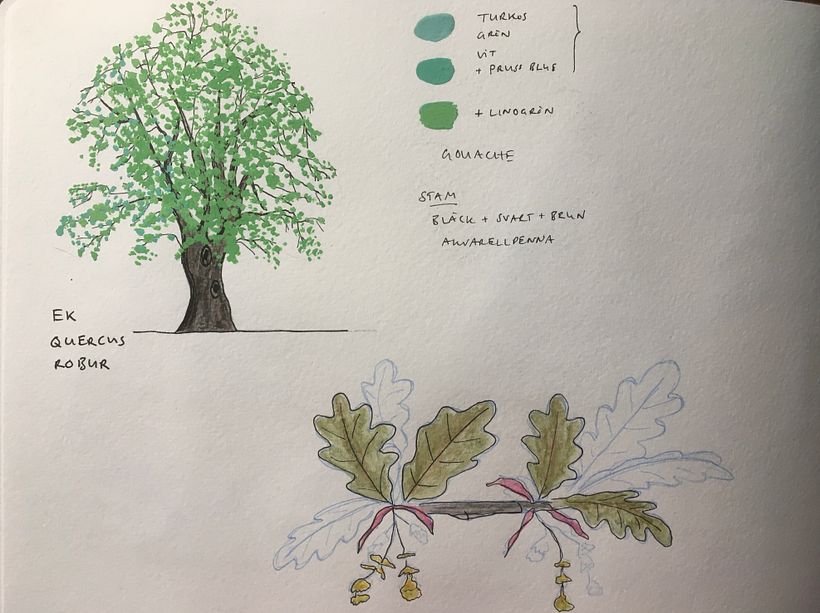 TURKOS
GRÖN
VIT
+ PRUSS BLUE
+ LINDGRÖN
GOUACHE
STAM
BLÄCK + SVART + BRUN
AKVARELLPENNA
EK
QUERCUS
ROBUR